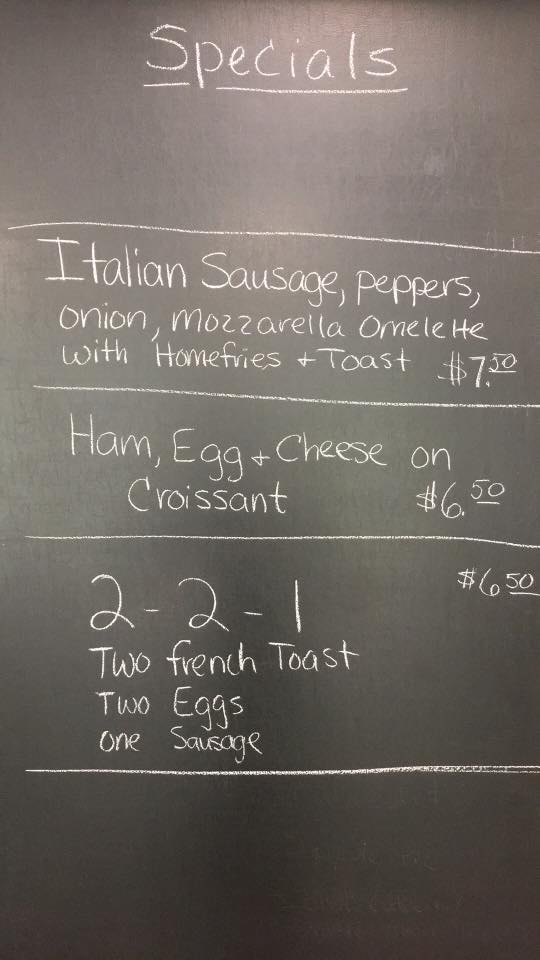 Specials
Italian Sausage, peppers,
onion, mozzarella omelette
with Homefries + Toast $7.50
Ham, Egg + Cheese on
Croissant $6.50
$6 50
2 - 2 - 1
Two french Toast
Two Eggs
one Sausage